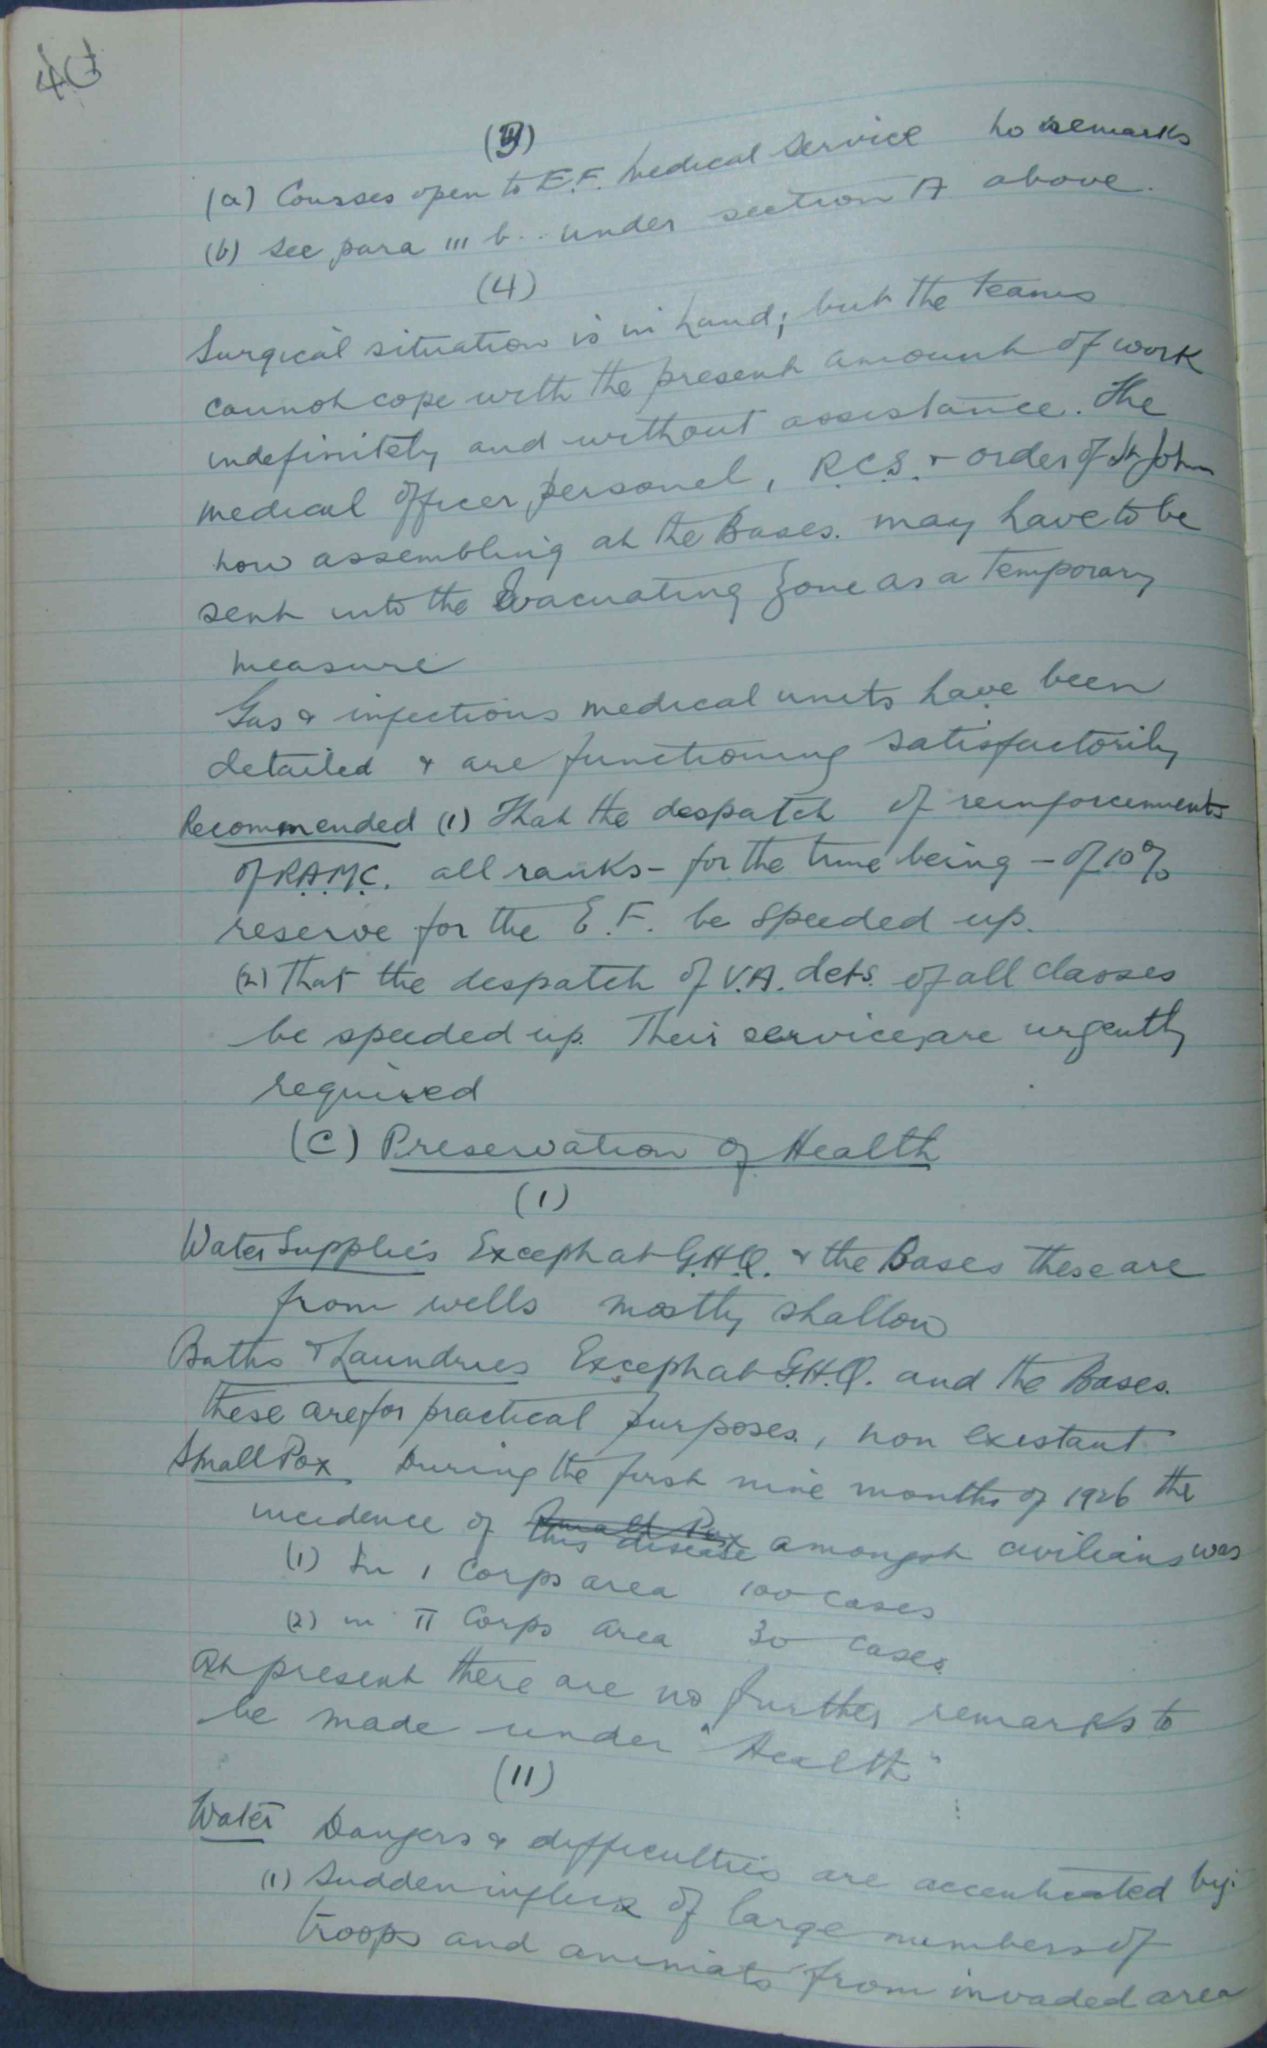 (3)
(a) Courses open to E.F. Medical Service no remarks
(b) See para III b.. under section A above.
(4)
Surgical situation is in hand; but the teams
cannot cope with the present amount of work
indefinitely and without assistance. The
medical officer personel, R.C.S. + order of St John
now assembling at the Bases. may have to be
sent into the Evacuating Zone as a temporary
measure
Gas & infections medical units have been
detailed & are functioning satisfactorily
Recommended (1) That the despatch of reinforcements
of R.A.M.C. all ranks – for the time being – of 10%
reserve for the E.F. be speeded up.
(2) That the despatch of V.A. dets. of all classes
be speeded up. Their services are urgently
required
(C) Preservation of Health
(1)
Water Supplies Except at G.H.Q. & the Bases these are
from wells mostly shallow
Baths & Laundries Except at G.H.Q. and the Bases.
these are, for practical purposes, non existant
Small Pox During the first nine months of 1926 the
incidence of Small Pox this disease amongst civilians was
(1) In I Corps area 100 cases
(2) in II Corps area 30 cases
At present there are no further remarks to
be made under "Health"
(11)
Water Dangers & difficulties are accentuated by:
(1) Sudden influx of large numbers of
troops and animals from invaded area